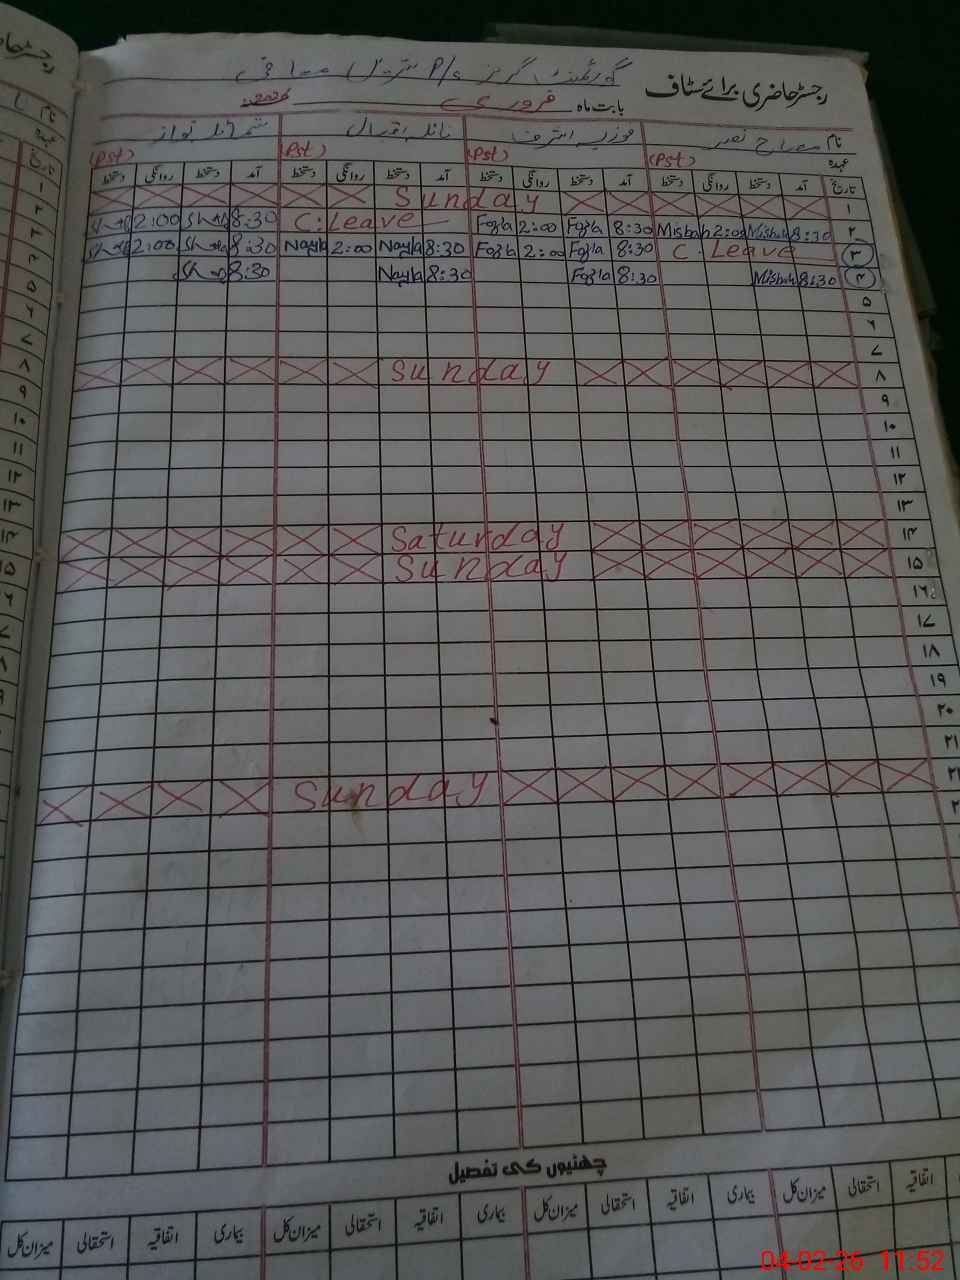 رجسٹر حاضری برائے سٹاف
گورنمنٹ گرلز P/s
بابت ماہ فروری 2026
نام مصباح نصر فوزیہ اشرف نائلہ اقبال شمائلہ نواز
عہدہ (Pst) (Pst) (Pst) (Pst)
تاریخ آمد دستخط روانگی دستخط آمد دستخط روانگی دستخط آمد دستخط روانگی دستخط آمد دستخط روانگی دستخط
۱ Sunday
۲ 8:30 Misbah 2:00 Misbah 8:30 Fozia 2:00 Fozia C:Leave 8:30 2:00
۳ C.Leave 8:30 Fozia 2:00 Fozia 8:30 Nayla 2:00 Nayla 8:30 2:00
۴ 8:30 Misbah 8:30 Fozia 8:30 Nayla 8:30
۵
۶
۷
۸ Sunday
۹
۱۰
۱۱
۱۲
۱۳
۱۴ Saturday
۱۵ Sunday
۱۶
۱۷
۱۸
۱۹
۲۰
۲۱
Sunday
چھٹیوں کی تفصیل
اتفاقیہ استحقاقی میزان کل بیماری اتفاقیہ استحقاقی میزان کل بیماری اتفاقیہ استحقاقی میزان کل بیماری اتفاقیہ استحقاقی میزان کل
04-02-26 11:52